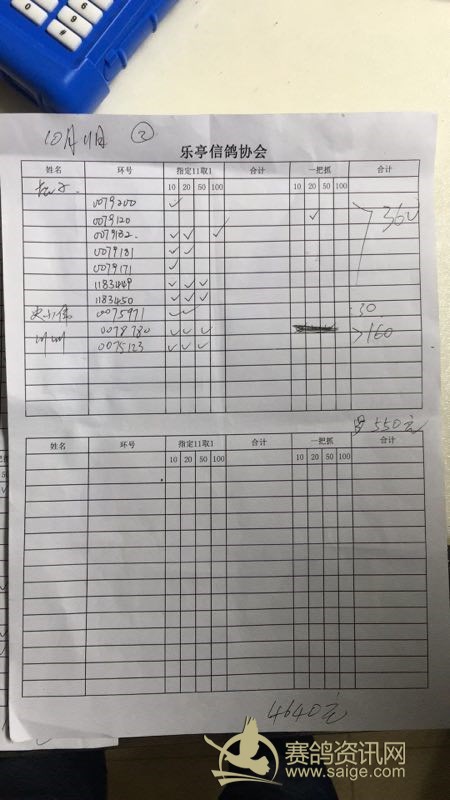 10月11日 ②
乐亭信鸽协会
姓名 环号 指定11取1 合计 一把抓 合计
10 20 50 100 10 20 50 100
0079200 ✓
0079120 ✓ 360
0079182 ✓ ✓ ✓
0079181 ✓ ✓
0079171 ✓
1183449 ✓ ✓ ✓
1183450 ✓ ✓ ✓
0075971 ✓ ✓ 30
0078780 ✓ ✓ ✓ 160
0075123 ✓ ✓ ✓
550元
姓名 环号 指定11取1 合计 一把抓 合计
10 20 50 100 10 20 50 100
4640元
赛鸽资讯网
www.saige.com